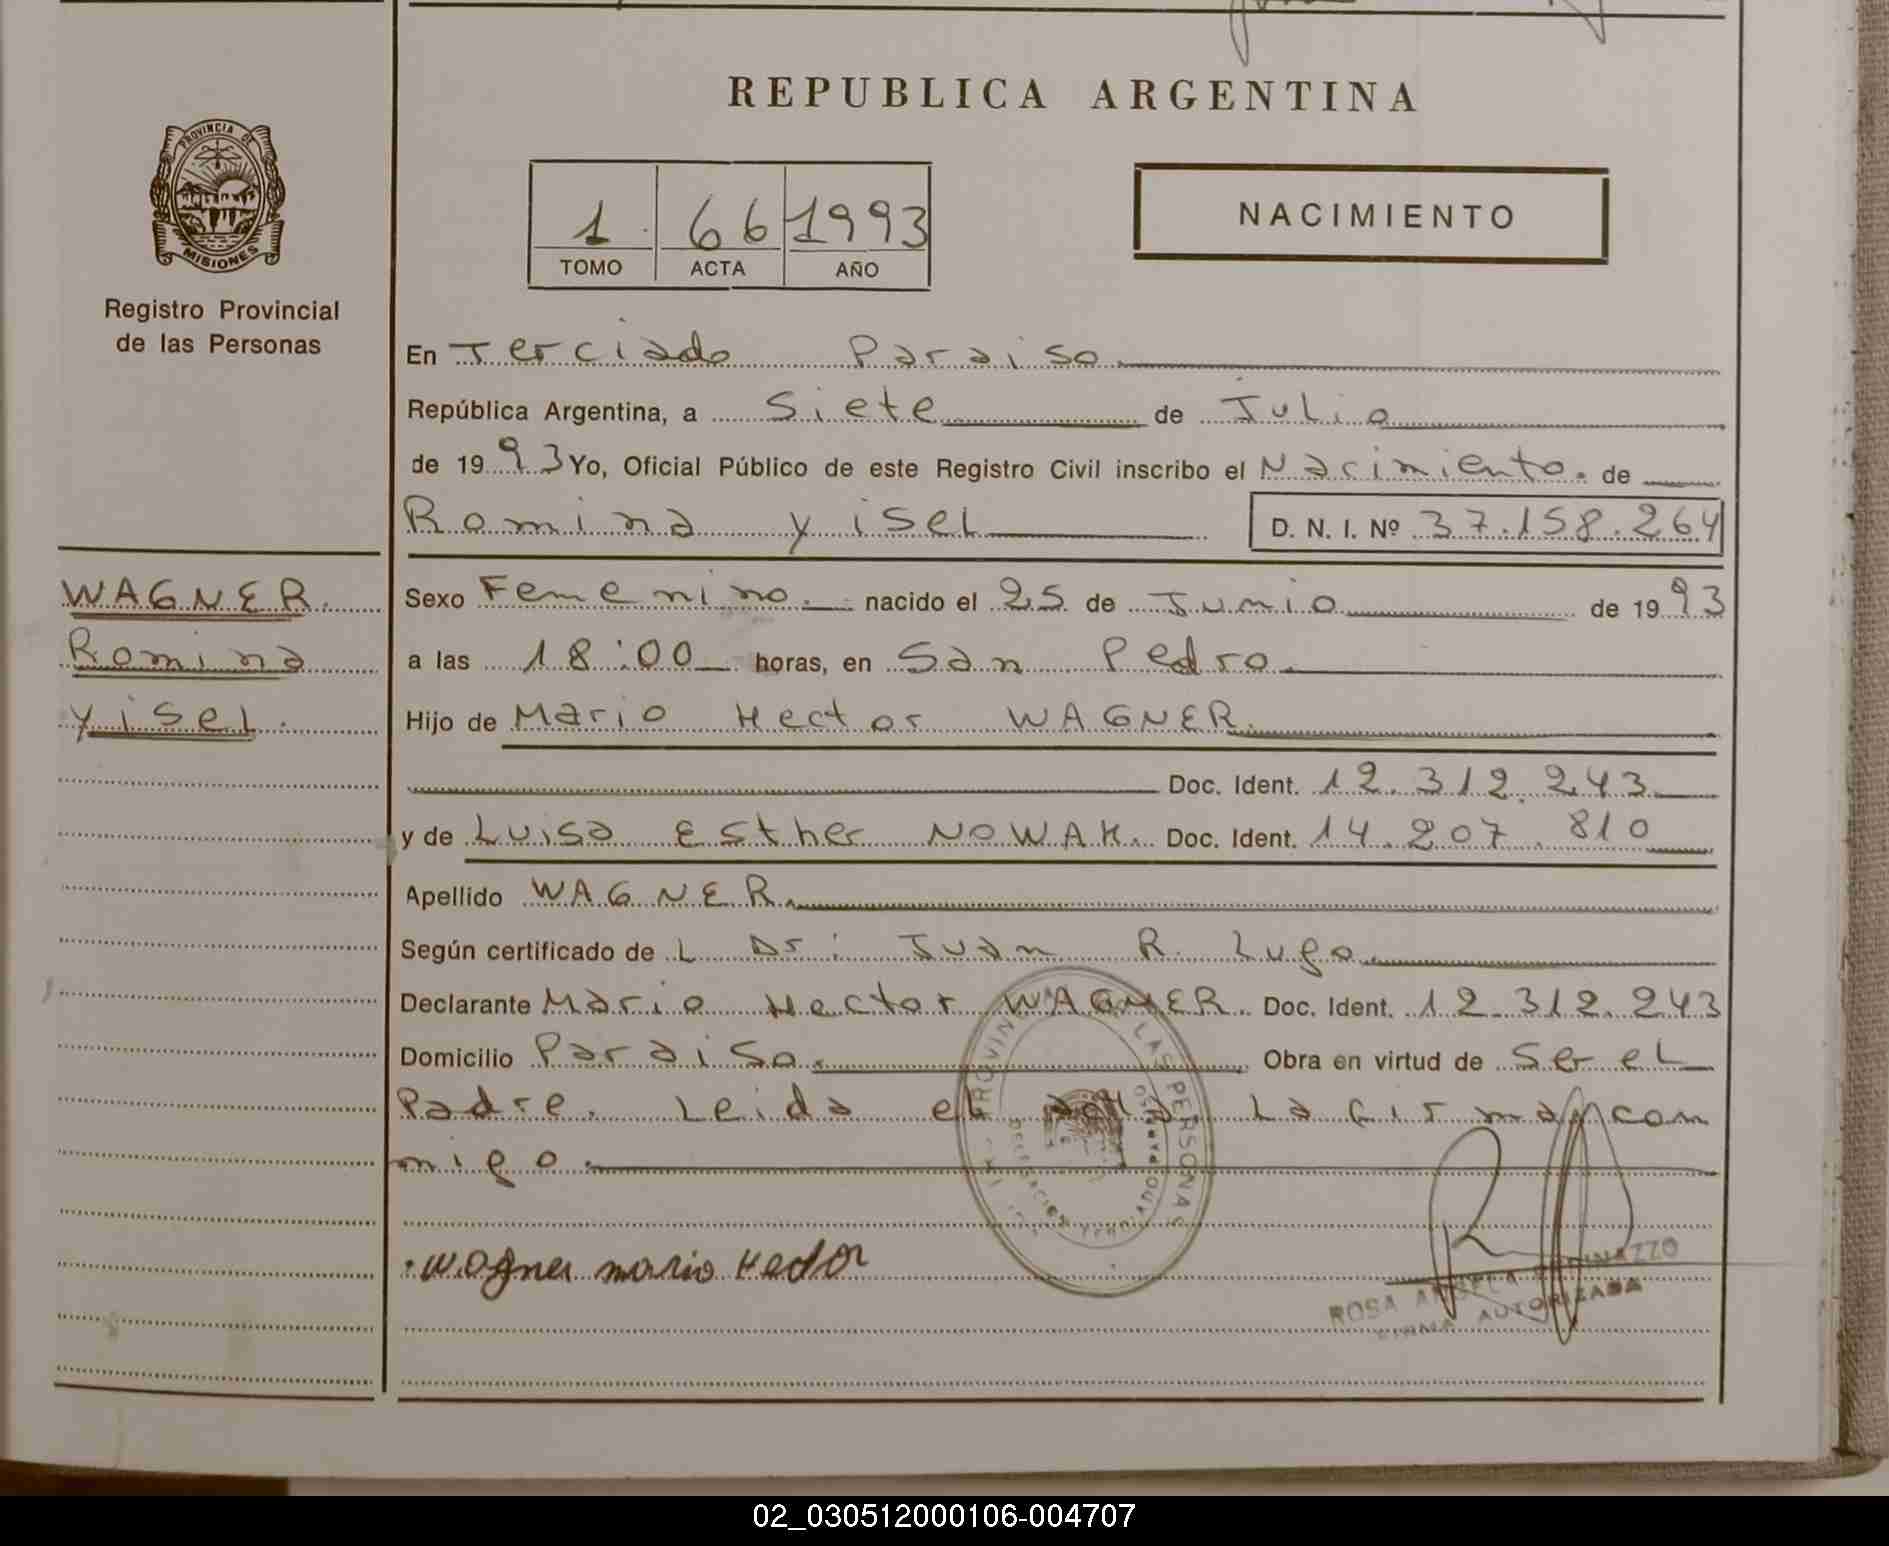 REPUBLICA ARGENTINA
PROVINCIA DE
MISIONES
Registro Provincial
de las Personas
1 66 1993
TOMO ACTA AÑO
NACIMIENTO
En Terciado Paraiso
República Argentina, a Siete de Julio
de 1993 Yo, Oficial Público de este Registro Civil inscribo el Nacimiento. de
Romina Yisel D. N. I. Nº 37.158.264
WAGNER.
Romina
Yisel.
Sexo Femenino. nacido el 25 de Junio de 1993
a las 18:00 horas, en San Pedro
Hijo de Mario Hector WAGNER.
Doc. Ident. 12.312.243
y de Luisa Esther NOWAK. Doc. Ident. 14.207.810
Apellido WAGNER.
Según certificado de L Dr: Juan R. Lugo
Declarante Mario Hector WAGNER. Doc. Ident. 12.312.243
Domicilio Paraiso. Obra en virtud de Ser el
Padre. Leida el acta La firman con
migo.
LAS PERSONAS
Wagner mario Hector
ROSA ANGELA
FIRMA AUTORIZADA
02_030512000106-004707